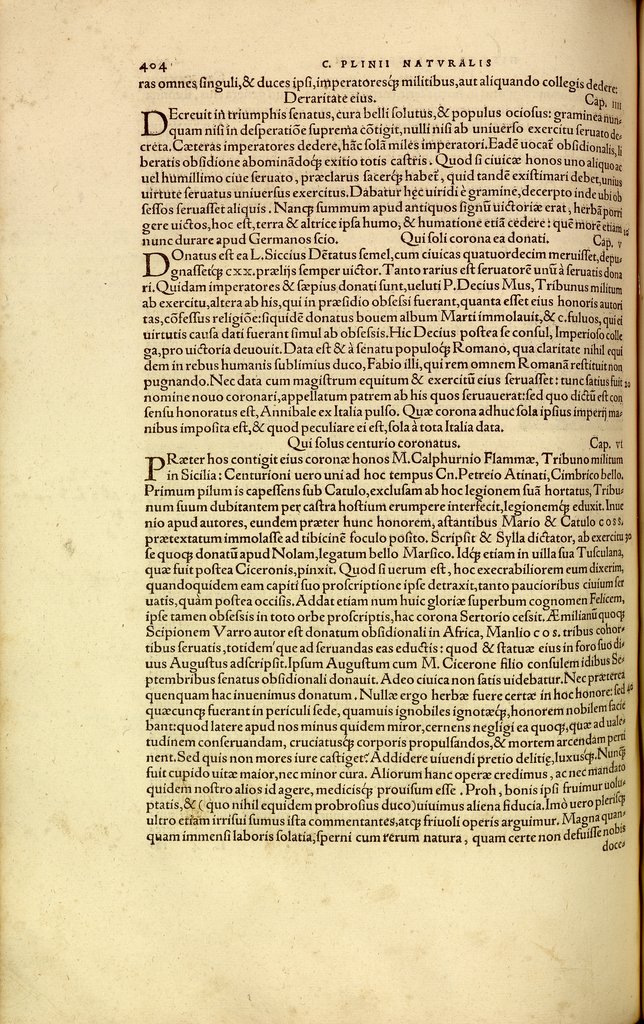 404 C. PLINII NATVRALIS
ras omnes singuli,& duces ipsi,imperatoresq́; militibus,aut aliquando collegis dedere:
De raritate eius. Cap. iiii
DEcreuit in triumphis senatus, cura belli solutus,& populus ociosus: graminea nun-
quam nisi in desperatiõe suprema cõtigit,nulli nisi ab uniuerso exercitu seruato de-
creta.Cæteras imperatores dedere,hãc solã miles imperatori.Eadẽ uocat̃ obsidionalis,li
beratis obsidione abominãdoq́; exitio totis castris. Quod si ciuicæ honos uno aliquo ac
uel humillimo ciue seruato, præclarus sacerq́; habet̃, quid tandẽ existimari debet,unius
uirtute seruatus uniuersus exercitus. Dabatur hec uiridi è gramine,decerpto inde ubi ob
sessos seruasset aliquis. Nanq́; summum apud antiquos signũ uictoriæ erat, herbã porri
gere uictos,hoc est,terra & altrice ipsa humo,& humatione etiã cedere: quẽ morẽ etiam 10
nunc durare apud Germanos scio. Qui soli corona ea donati. Cap. v
DOnatus est ea L.Siccius Dẽtatus semel,cum ciuicas quatuordecim meruisset,depu-
gnassetq́; cxx.prælijs semper uictor. Tanto rarius est seruatorẽ unũ à seruatis dona
ri. Quidam imperatores & sæpius donati sunt,ueluti P.Decius Mus, Tribunus militum
ab exercitu,altera ab his,qui in præsidio obsessi fuerant,quanta esset eius honoris autori
tas,cõfessus religiõe:siquidẽ donatus bouem album Marti immolauit,& c.fuluos,qui ei
uirtutis causa dati fuerant simul ab obsessis.Hic Decius postea se consul, Imperioso colle
ga,pro uictoria deuouit. Data est & à senatu populoq́; Romano, qua claritate nihil equi
dem in rebus humanis sublimius duco, Fabio illi,qui rem omnem Romanã restituit non
pugnando. Nec data cum magistrum equitum & exercitũ eius seruasset: tunc satius fuit 20
nomine nouo coronari,appellatum patrem ab his quos seruauerat:sed quo dictũ est con
sensu honoratus est, Annibale ex Italia pulso. Quæ corona adhuc sola ipsius imperij ma-
nibus imposita est,& quod peculiare ei est,sola à tota Italia data.
Qui solus centurio coronatus. Cap. vi
PRæter hos contigit eius coronæ honos M.Calphurnio Flammæ, Tribuno militum
in Sicilia: Centurioni uero uni ad hoc tempus Cn.Petreio Atinati,Cimbrico bello.
Primum pilum is capessens sub Catulo,exclusam ab hoc legionem suã hortatus, Tribu-
num suum dubitantem per castra hostium erumpere interfecit,legionemq́; eduxit. Inue
nio apud autores, eundem præter hunc honorem, astantibus Mario & Catulo coss.
prætextatum immolasse ad tibicinẽ foculo posito. Scripsit & Sylla dictator, ab exercitu 30
se quoq́; donatũ apud Nolam,legatum bello Marsico. Idq́; etiam in uilla sua Tusculana,
quæ fuit postea Ciceronis,pinxit. Quod si uerum est, hoc execrabiliorem eum dixerim,
quandoquidem eam capiti suo proscriptione ipse detraxit,tanto paucioribus ciuium ser
uatis,quàm postea occisis. Addat etiam num huic gloriæ superbum cognomen Felicem,
ipse tamen obsessis in toto orbe proscriptis,hac corona Sertorio cessit. Æmilianũ quoq́;
Scipionem Varro autor est donatum obsidionali in Africa, Manlio cos. tribus cohor-
tibus seruatis,totidem que ad seruandas eas eductis: quod & statuæ eius in foro suo di-
uus Augustus adscripsit.Ipsum Augustum cum M. Cicerone filio consulem idibus Se-
ptembribus senatus obsidionali donauit. Adeo ciuica non satis uidebatur. Nec præterea
quenquam hac inuenimus donatum. Nullæ ergo herbæ fuere certæ in hoc honore: sed 40
quæcunq́; fuerant in periculi sede, quamuis ignobiles ignotæq́;,honorem nobilem facie
bant:quod latere apud nos minus quidem miror,cernens negligi ea quoq́;,quæ ad uale-
tudinem conseruandam, cruciatusq́; corporis propulsandos,& mortem arcendam perti
nent. Sed quis non mores iure castiget? Addidere uiuendi pretio delitię,luxusq́;. Nunq́;
fuit cupido uitæ maior,nec minor cura. Aliorum hanc operæ credimus, ac nec mandato
quidem nostro alios id agere, medicisq́; prouisum esse. Proh, bonis ipsi fruimur uolu-
ptatis,& (quo nihil equidem probrosius duco)uiuimus aliena fiducia. Imò uero plerisq́;
ultro etiam irrisui sumus ista commentantes,atq́; friuoli operis arguimur. Magna quan-
quam immensi laboris solatia,sperni cum rerum natura, quam certe non defuisse nobis
doce-